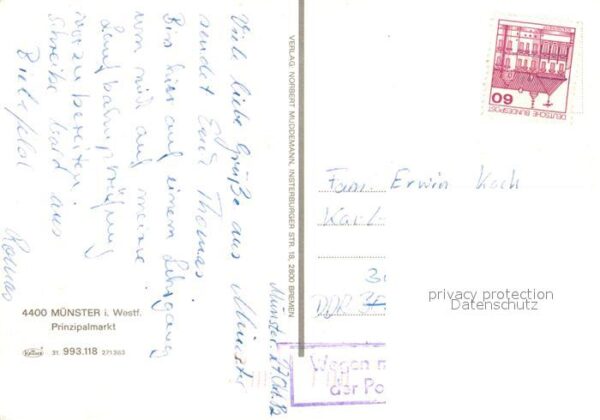 Münster, 27. Okt. 82
Viele liebe Grüße aus Münster
sendet Euch Thomas
Bin hier auf einem Lehrgang
um mich auf meine
Laufbahnprüfung
vorzubereiten
Schreibe bald aus
Bielefeld
Thomas
4400 MÜNSTER i. Westf.
Prinzipalmarkt
31 993.118 271263
VERLAG NORBERT MUDDEMANN, INSTERBURGER STR. 18, 2800 BREMEN
60
DEUTSCHE BUNDESPOST
Fam. Erwin Koch
Karl-
DDR
privacy protection
Datenschutz
Wegen
der Po